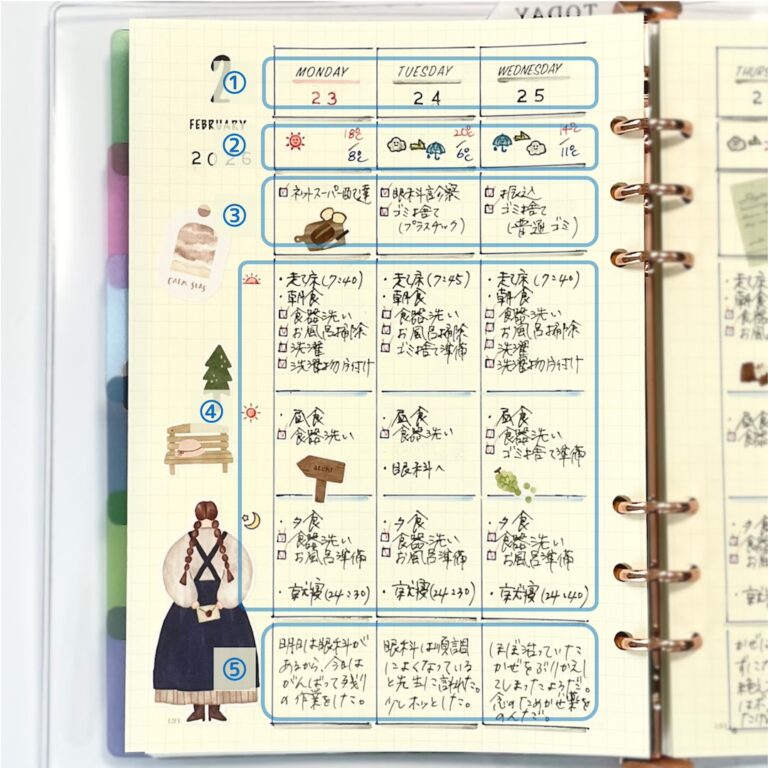 TODAY
2
FEBRUARY
2026
① MONDAY TUESDAY WEDNESDAY THURS
23 24 25 2
② 18℃/8℃ 20℃/6℃ 14℃/11℃
③ ネットスーパー配達 眼科診察 振込
ゴミ捨て ゴミ捨て
(プラスチック) (普通ゴミ)
CALM SEAS
④
・起床(7:40) ・起床(7:45) ・起床(7:40)
・朝食 ・朝食 ・朝食
食器洗い 食器洗い 食器洗い
お風呂掃除 お風呂掃除 お風呂掃除
洗濯 ゴミ捨て準備 洗濯
洗濯物片付け 洗濯物片付け
・昼食 ・昼食 ・昼食
食器洗い 食器洗い 食器洗い
ゴミ捨て準備
・眼科へ
・夕食 ・夕食 ・夕食
食器洗い 食器洗い 食器洗い
お風呂準備 お風呂準備 お風呂準備
・就寝(24:30) ・就寝(24:30) ・就寝(24:40)
⑤
明日は眼科が
あるから、今日は
がんばって残り
の作業をした。
眼科は順調
によくなっている
と先生に言われた。
少しホッとした。
ほぼ治っていた
かぜをぶりかえし
てしまったようだ。
念のためかぜ薬を
のんだ。
LIFE